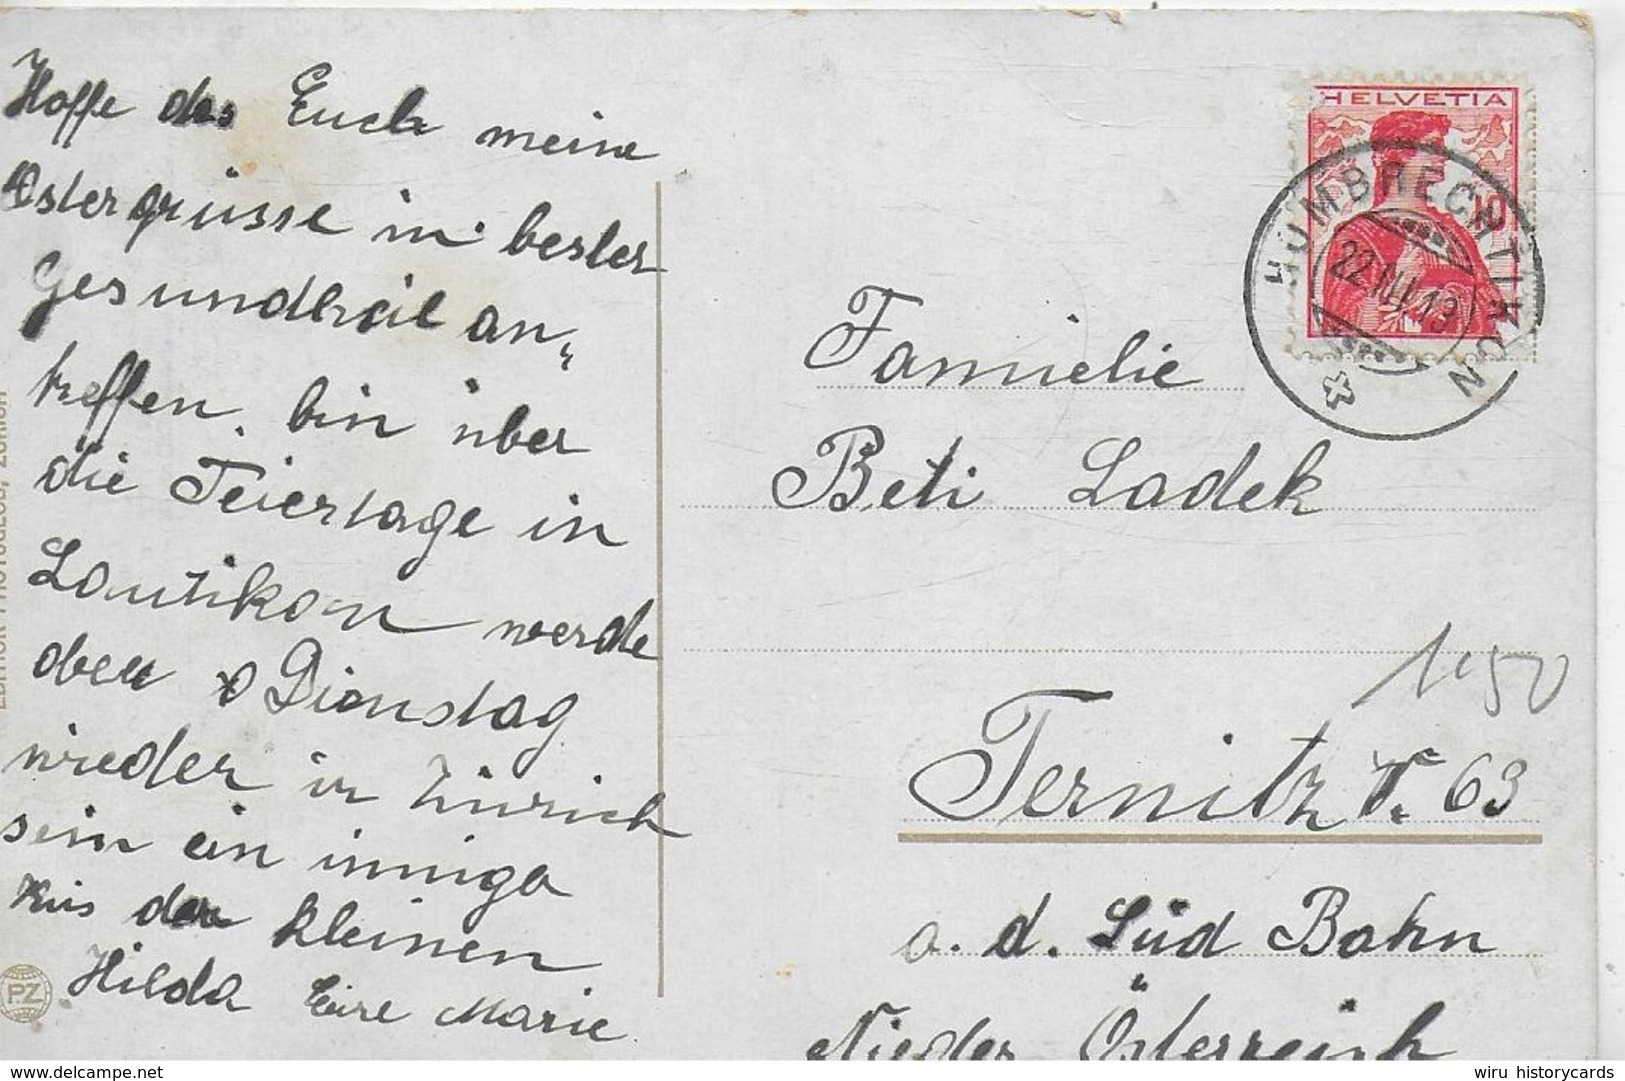 Hoffe das Euch meine
Ostergrüsse in bester
Gesundheit an„
treffen. bin über
die Feiertage in
Lautikon werde
aber Dienstag
wieder in Zürich
sein ein iniga
Kus der kleinen
Hilda Eure Marie
HELVETIA
10
HOMBRECHTIKON
22.III.13
Familie
Beti Ladek
1"50
Ternitz N. 63
a. d. Süd Bahn
Nieder Österreich
EDITION PHOTOGLOB, ZÜRICH
PZ
wiru historycards